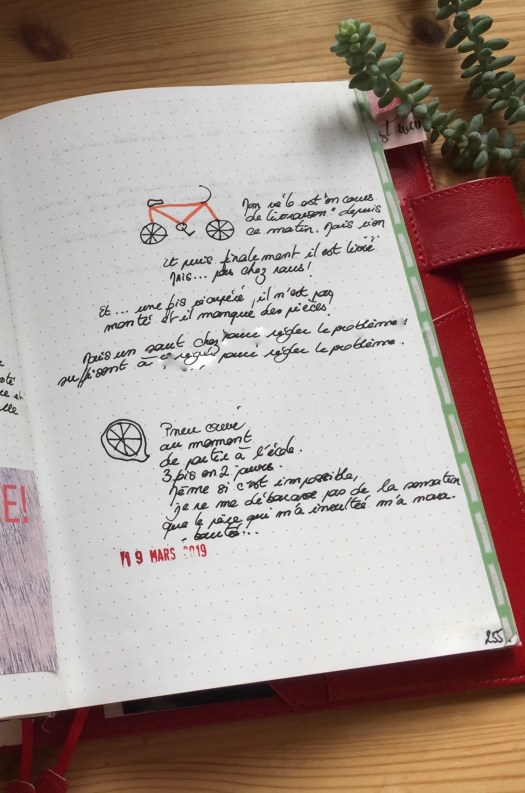 Mon vélo est "en cours
de livraison" depuis
ce matin. Mais rien
Et puis finalement il est livré
Mais... pas chez nous!
Et... une fois récupéré, il n'est pas
monté et il manque des pièces.
Mais un saut chez pour régler le problème.
suffisent à régler pour régler le problème.
Pneu crevé
au moment
de partir à l'école.
3 fois en 2 jours.
Même si c'est impossible,
je ne me débarasse pas de la sensation
que le père qui m'a insultée m'a mara-
boutée!..
19 MARS 2019
255
E!
st